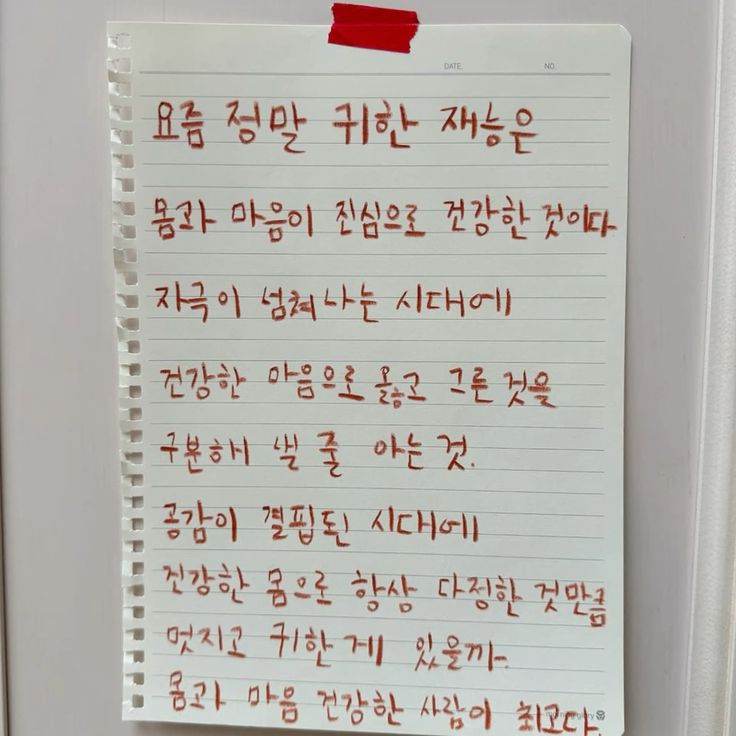 DATE. NO.
요즘 정말 귀한 재능은
몸과 마음이 진심으로 건강한 것이다
자극이 넘쳐나는 시대에
건강한 마음으로 옳고 그른 것을
구분해 낼 줄 아는 것.
공감이 결핍된 시대에
건강한 몸으로 항상 다정한 것만큼
멋지고 귀한 게 있을까.
몸과 마음 건강한 사람이 최고다.